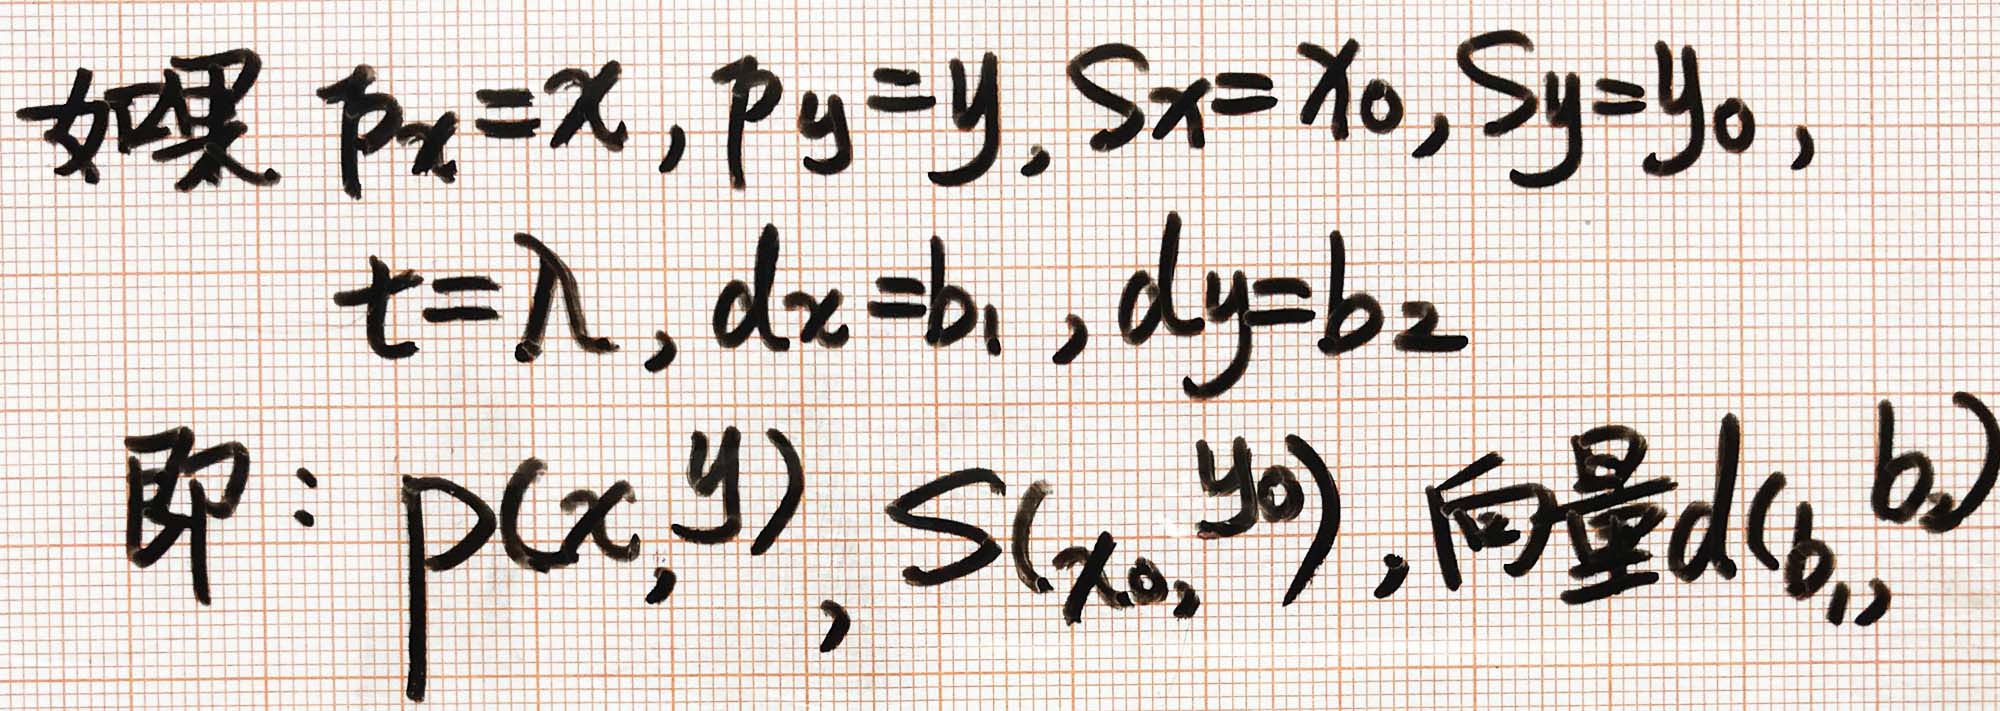 如果 px=x, py=y, Sx=x0, Sy=y0,
t=λ, dx=b1, dy=b2
即: p(x,y), S(x0,y0), 向量d(b1,b2)